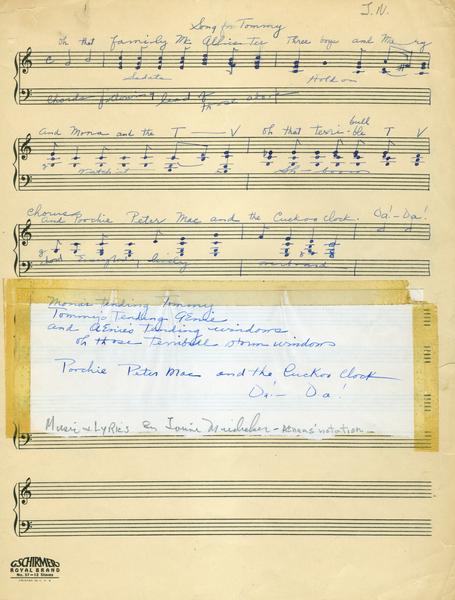 J.N.
Song for Tommy
Oh that family Mc Allis Tee Three boys and Me ry
Sedate Hold on
Chords following lead of those above
And Mona and the T — V oh that terri-ble T V
bull
Watch it Sh-boom
Chorus
and Poochie Peter Mac and the Cuckoo Clock. Da! - Da!
Monas tending Tommy
Tommy's Tending Genie
and Genie's Tending windows
Oh those terribull storm windows
Poochie Peter Mac and the Cuckoo Clock
Da! - Da!
Music & Lyrics by Louie - notation -
G. SCHIRMER
ROYAL BRAND
No. 57—12 Staves